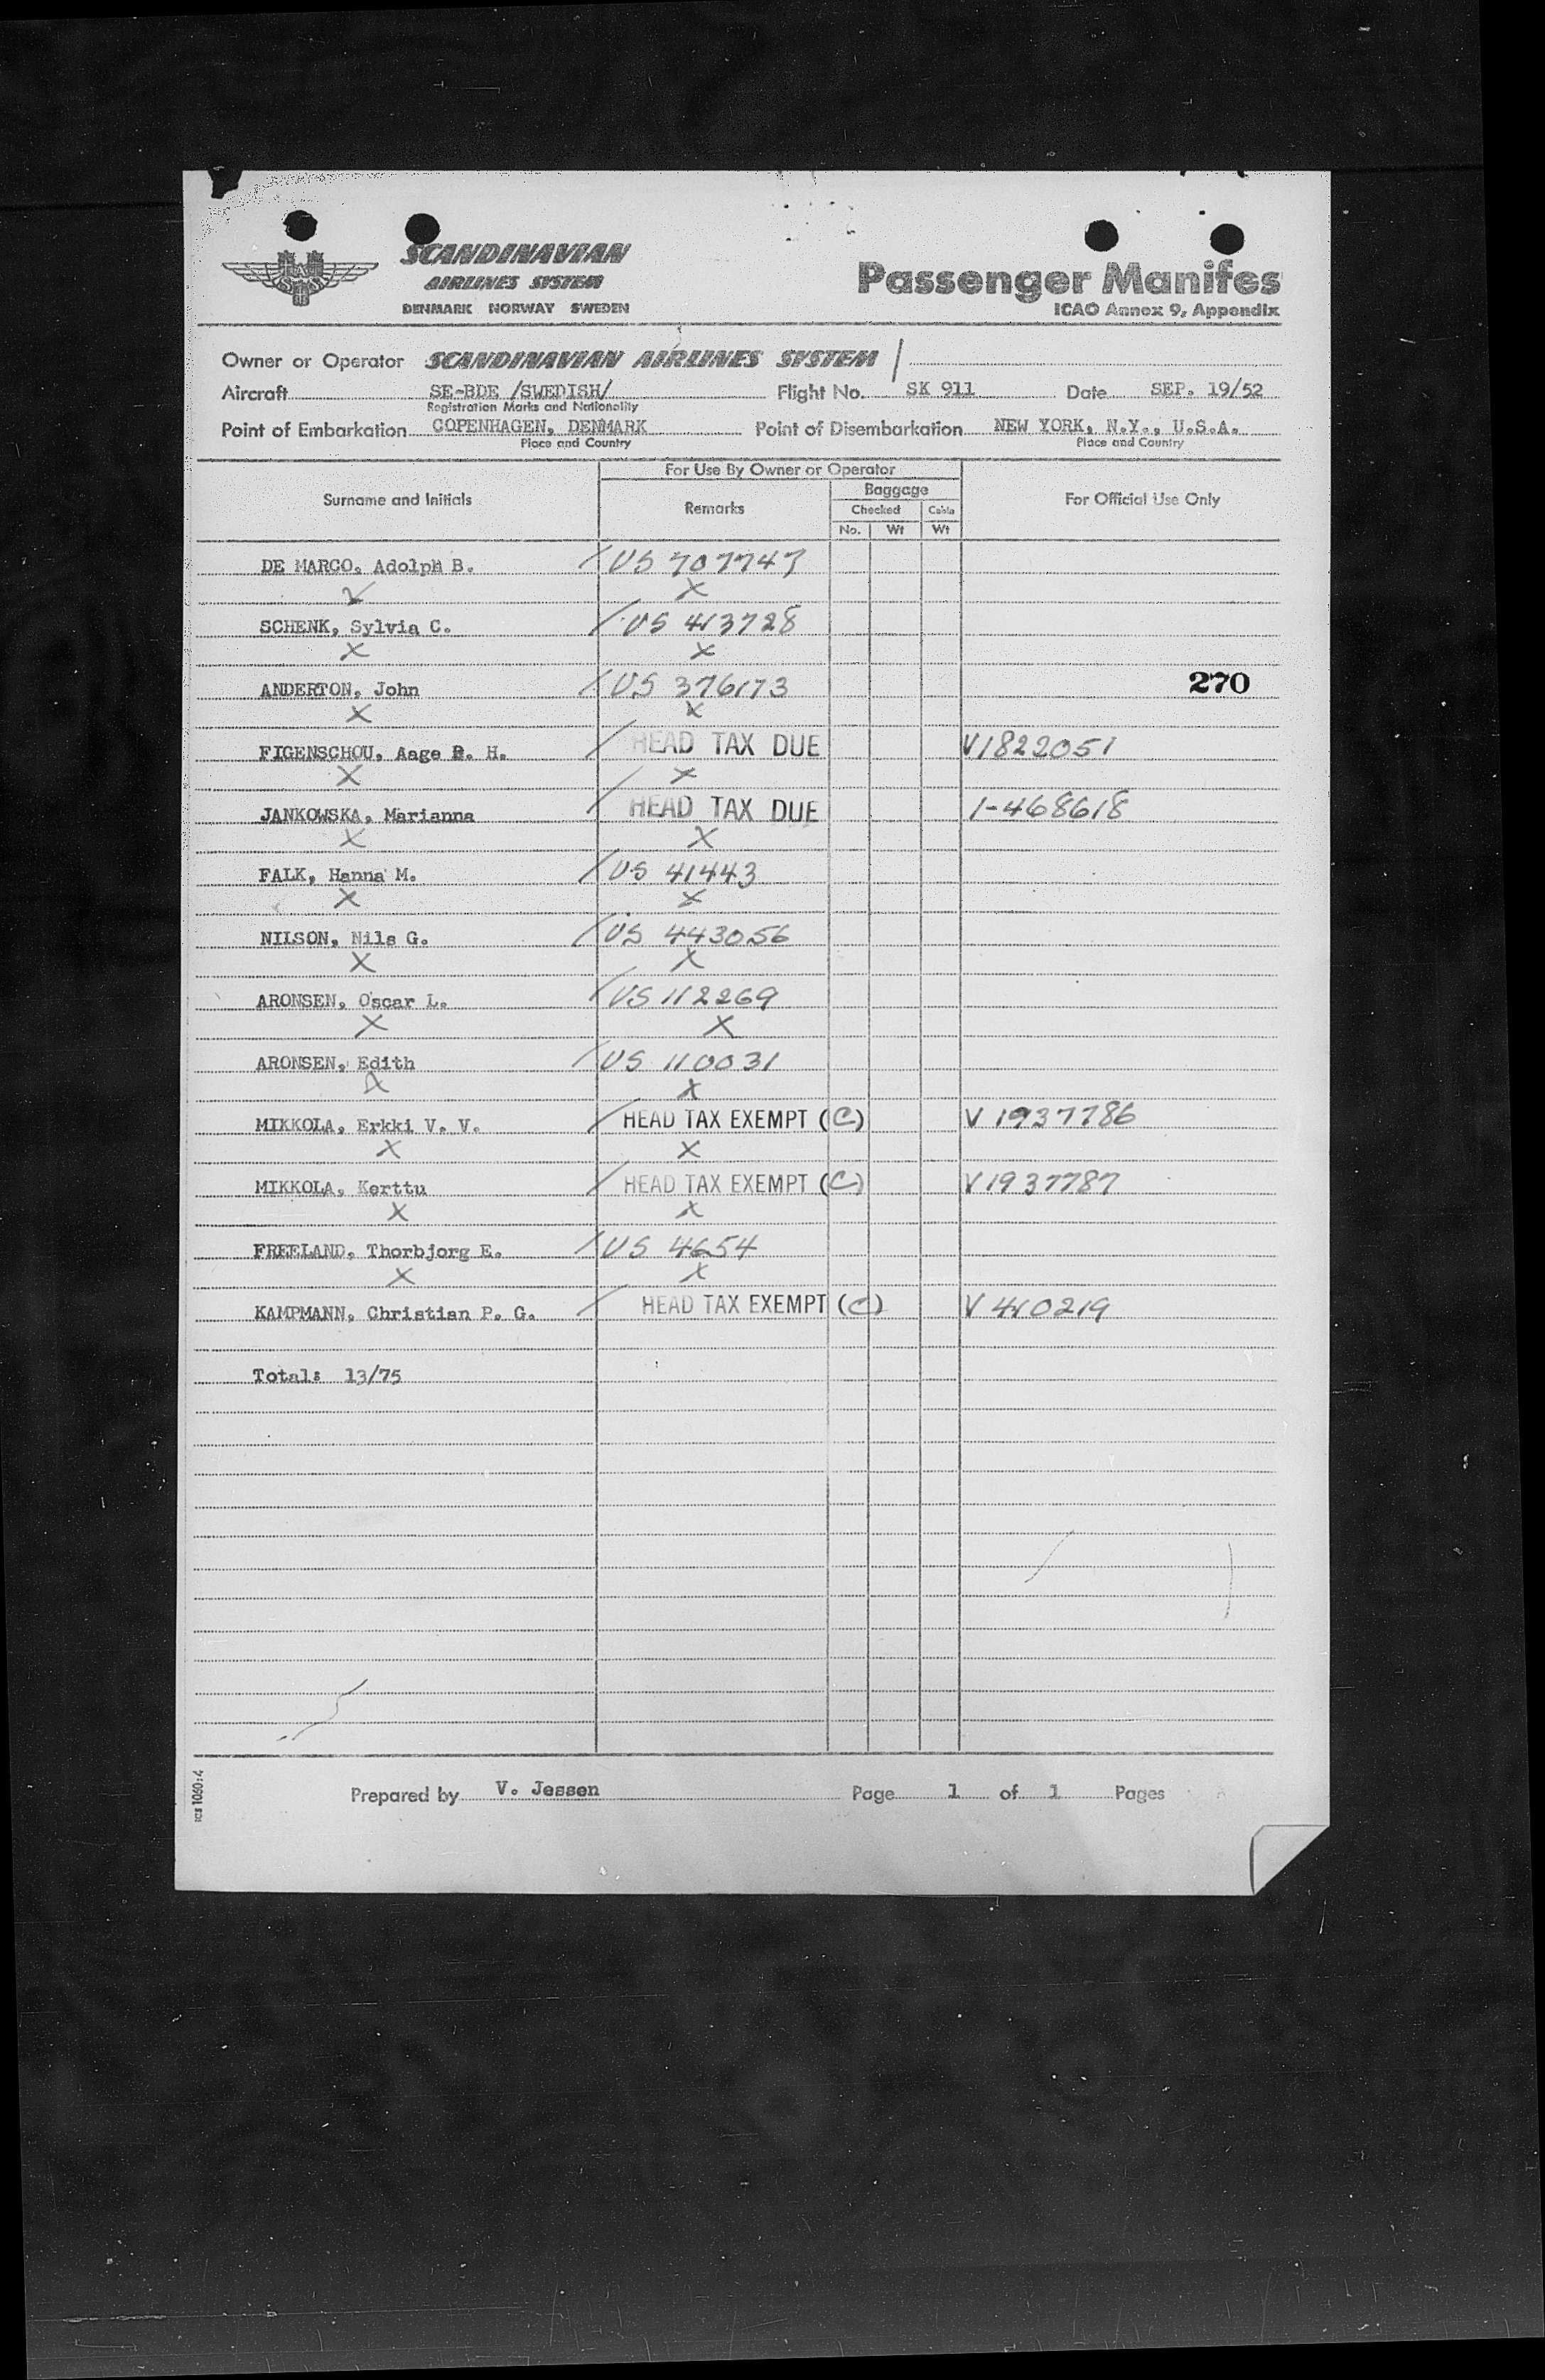 SCANDINAVIAN
AIRLINES SYSTEM
DENMARK NORWAY SWEDEN
Passenger Manifes
ICAO Annex 9, Appendix
Owner or Operator SCANDINAVIAN AIRLINES SYSTEM
Aircraft SE-BDE /SWEDISH/ Flight No. SK 911 Date SEP. 19/52
Registration Marks and Nationality
Point of Embarkation COPENHAGEN, DENMARK Point of Disembarkation NEW YORK, N.Y., U.S.A.
Place and Country Place and Country
For Use By Owner or Operator
Surname and Initials Remarks Baggage For Official Use Only
Checked Cabin
No. Wt Wt
DE MARCO, Adolph B. / US 707747
✓ X
SCHENK, Sylvia C. / US 413728
X X
ANDERTON, John / US 376173 270
X X
FIGENSCHOU, Aage B. H. / HEAD TAX DUE V1822051
X X
JANKOWSKA, Marianna / HEAD TAX DUE 1-468618
X X
FALK, Hanna M. / US 41443
X X
NILSON, Nils G. / US 443056
X X
ARONSEN, Oscar L. / US 112269
X X
ARONSEN, Edith / US 110031
X X
MIKKOLA, Erkki V. V. / HEAD TAX EXEMPT (C) V 1937786
X X
MIKKOLA, Kerttu / HEAD TAX EXEMPT (C) V1937787
X X
FREELAND, Thorbjorg E. / US 4654
X X
KAMPMANN, Christian P. G. / HEAD TAX EXEMPT (C) V 410219
Total: 13/75
Prepared by V. Jessen Page 1 of 1 Pages